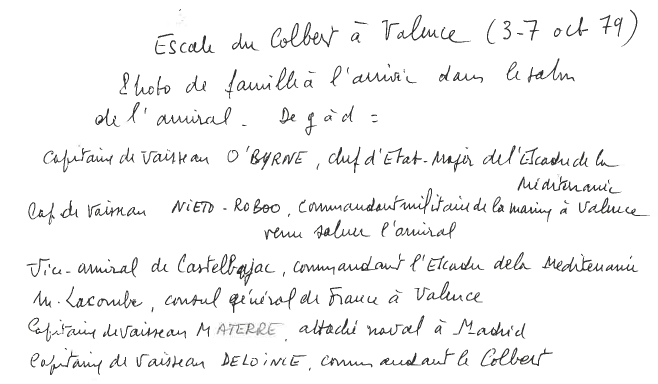 Escale du Colbert à Valence (3-7 oct 79)
Photo de famille à l'arrivée dans le salon
de l'amiral. De g à d =
Capitaine de Vaisseau O'BYRNE, chef d'Etat-Major de l'Escadre de la
Méditerranée
Cap. de Vaisseau NIETO-ROBOO, commandant militaire de la marine à Valence
venu saluer l'amiral
Vice-amiral de Castelbajac, commandant l'Escadre de la Méditerranée
M. Lacombe, consul général de France à Valence
Capitaine de Vaisseau MATERRE, attaché naval à Madrid
Capitaine de Vaisseau DELOINCE, commandant le Colbert